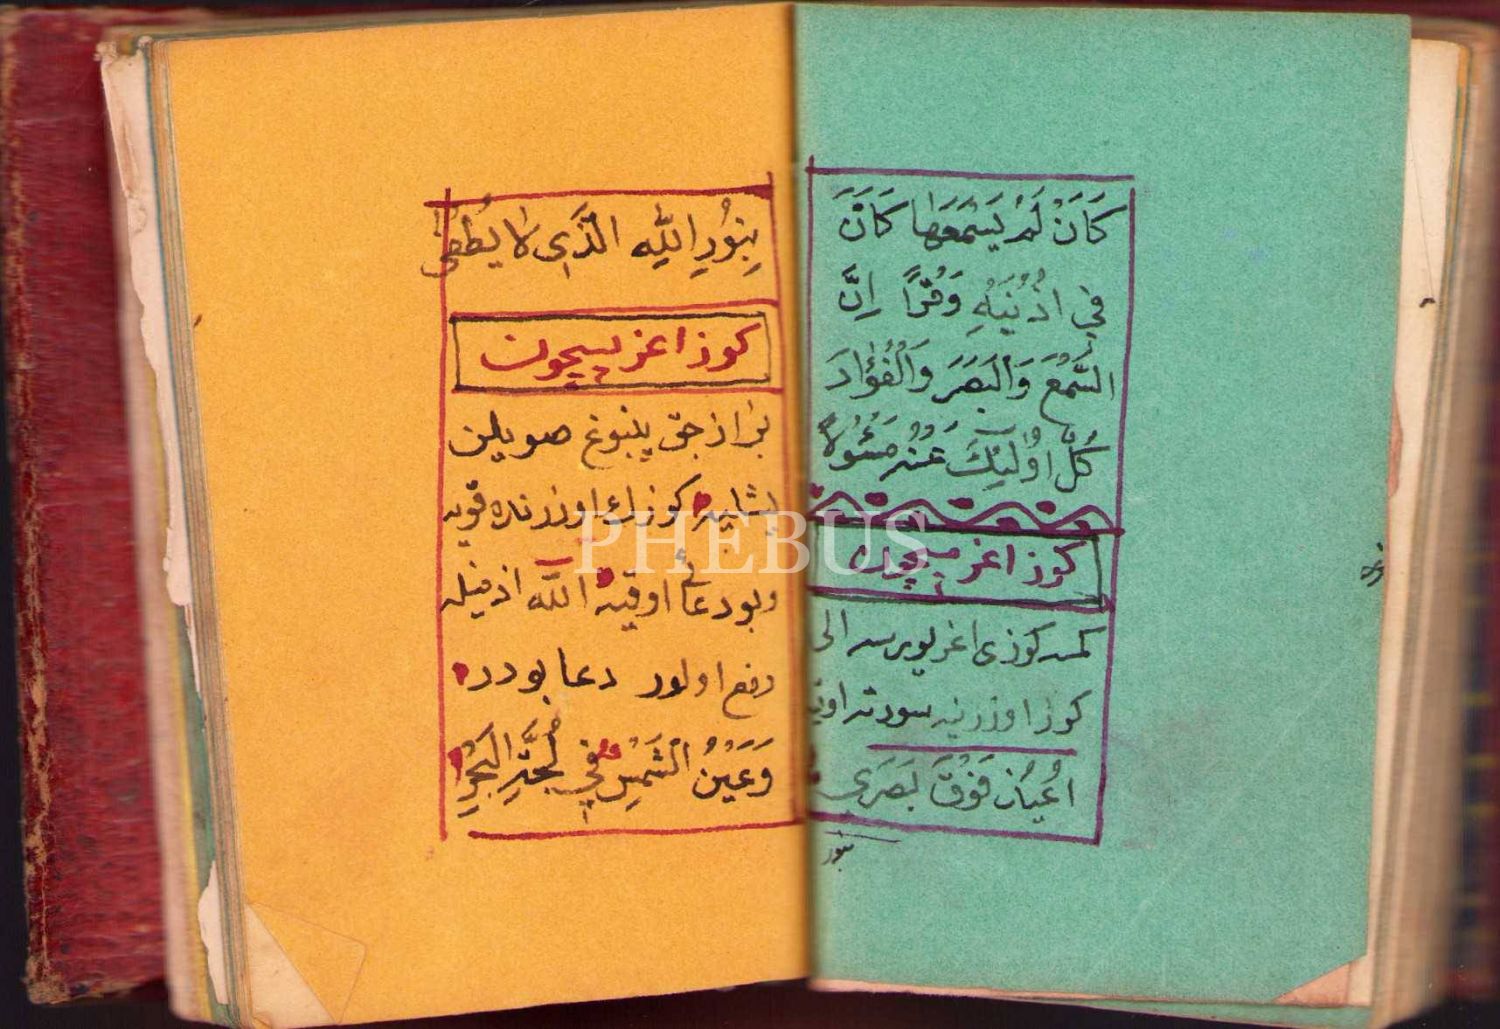 كَاَنْ لَمْ يَسْمَعْهَا كَاَنَّ
فِي اُذُنَيْهِ وَقْرًا اِنَّ
السَّمْعَ وَالْبَصَرَ وَالْفُؤَادَ
كُلُّ اُولٰئِكَ عَنْهُ مَسْئُولًا
كوز اغريسيچون
كمسه كوزى اغريورسه الى
كوز اوزرينه سورته اوقيه
اُعِيذُ نُورَ بَصَرِي
بنور
بِنُورِ اللّٰهِ الَّذِى لَا يُطْفٰى
كوز اغريسيچون
براز جق پنبوغ صويلن
اصلايه كوزك اوزرنده قويه
وبو دعائى اوقيه الله اذنيله
رفع اولور دعا بودره
وَعَيْنُ الشَّمْسِ فِي لُجَّةِ الْبَحْرِ
PHEBUS